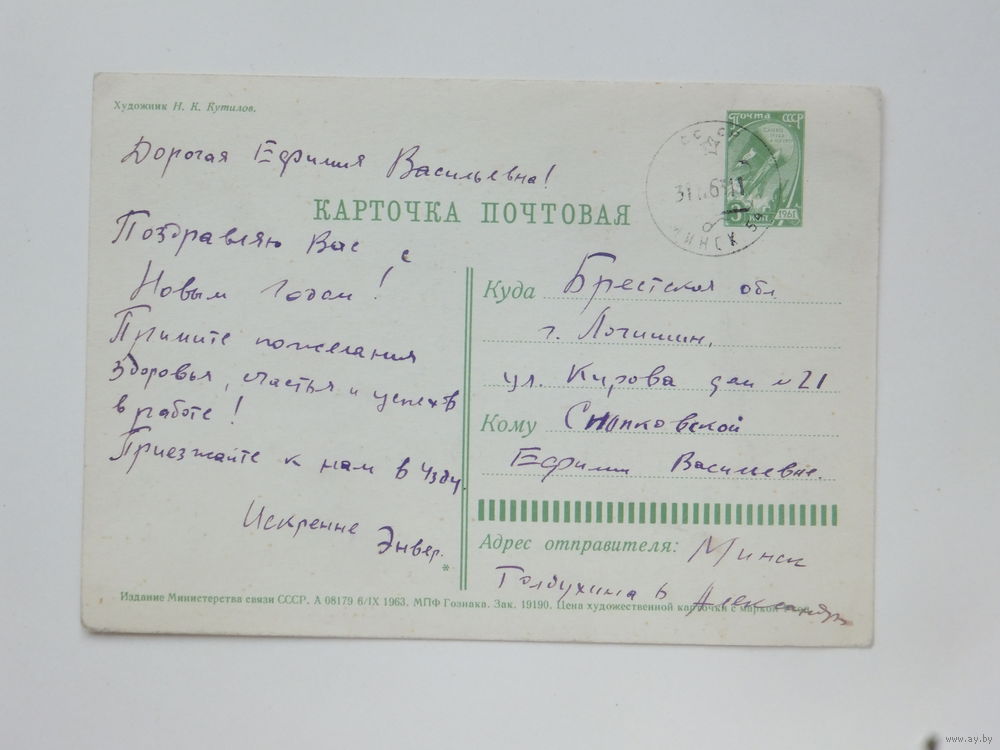 Художник Н. К. Кутилов.
Почта СССР
1961
МИНСК
КАРТОЧКА ПОЧТОВАЯ
Дорогая Ефимия Васильевна!
Поздравляю Вас с
Новым Годом!
Примите пожелания
здоровья, счастья и успехов
в работе!
Приезжайте к нам в
Искренне Энвер.
*
Куда Брестская обл
г. Логишин,
ул. Кирова дом № 21
Кому Снопковской
Ефимии Васильевне.
Адрес отправителя: Минск
Толбухина 6
Издание Министерства связи СССР. А 08179 6/IX 1963. МПФ Гознака. Зак. 19190. Цена художественной карточки с маркой
www.ay.by